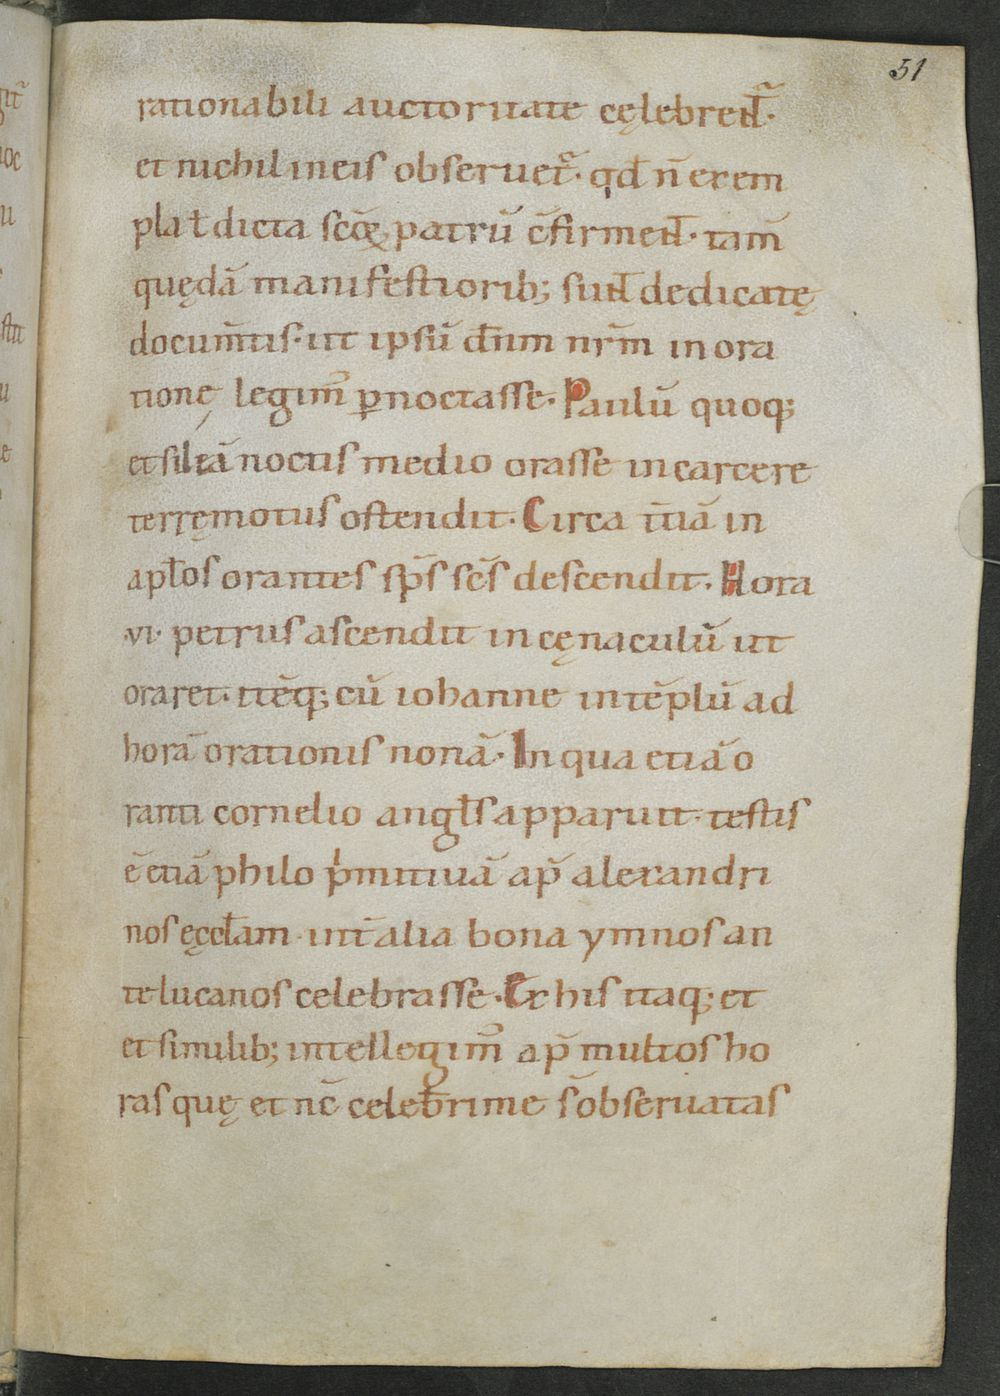 51
rationabili auctoritate cęlebrent᷑·
et nichil in eis obseruet᷑· qđ n̄ exem
pla ł dicta scōꝝ patrū c̄firment· tam̄
quędā manifestiorib; sunt dedicatę
docum̄tis· ut ipsū dn̄m nr̄m in ora
tionę legim᷒ ꝑnoctasse· Paulū quoq;
et sileā noctis medio orasse in carcere
terręmotus ostendit· Circa t̄tiā in
apłos orantes sp̄s sc̄s descendit· Hora
·vi· petrus ascendit in cęnaculū ut
oraret· itēq; cū iohanne in tēplū ad
horā orationis nonā· In qua etiā o
ranti cornelio angłs apparuit· testis
ē etiā philo pͥmitiuā ap̄ alexandri
nos ęccłam· int̄ alia bona ymnos an
telucanos celebrasse· Ex his itaq; et
et similib; intellegim᷒ ap̄ multos ho
ras quę et nc̄ celeƀrime s̄ obseruatas